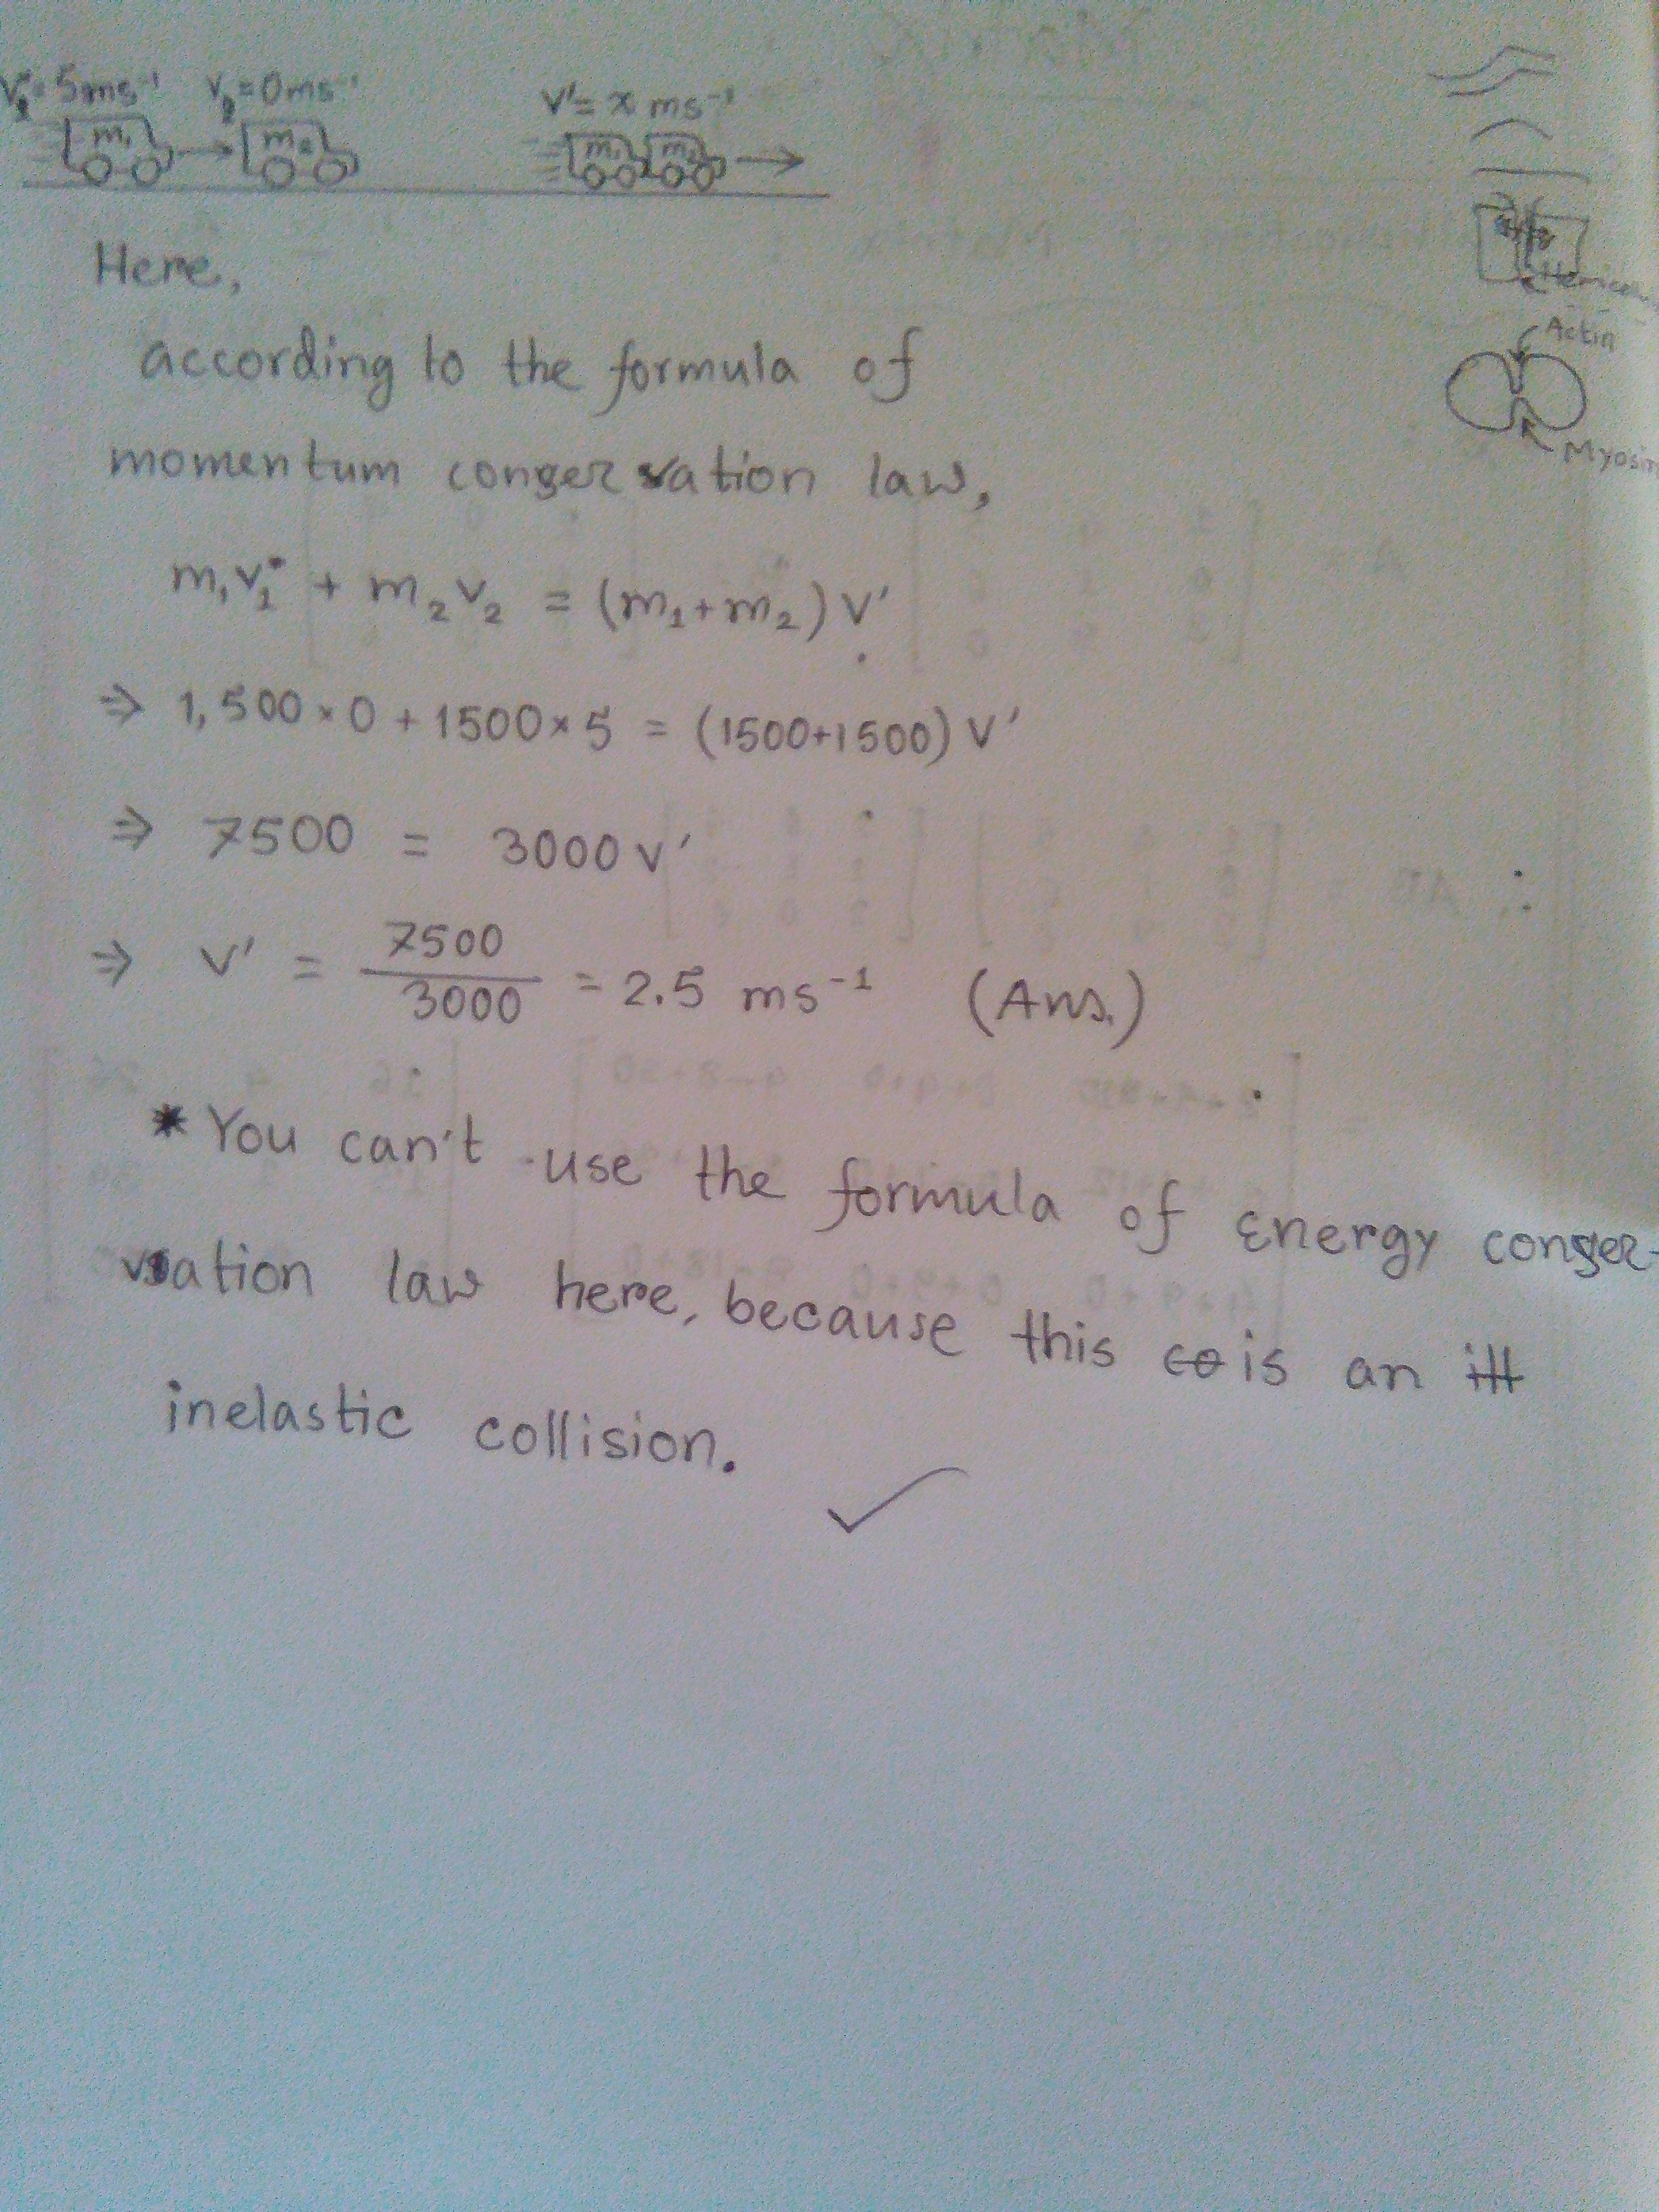 V₁=5ms⁻¹ V₂=0ms⁻¹ V'= x ms⁻¹
m₁ m₂ m₁ m₂
Here,
according to the formula of
momentum conservation law,
m₁v₁ + m₂v₂ = (m₁+m₂)V'
⇒ 1,500×0 + 1500×5 = (1500+1500) V'
⇒ 7500 = 3000 v'
⇒ V' = 7500/3000 = 2.5 ms⁻¹ (Ans.)
*You can't use the formula of energy conser-
vation law here, because this is an
inelastic collision.
Actin
Myosin